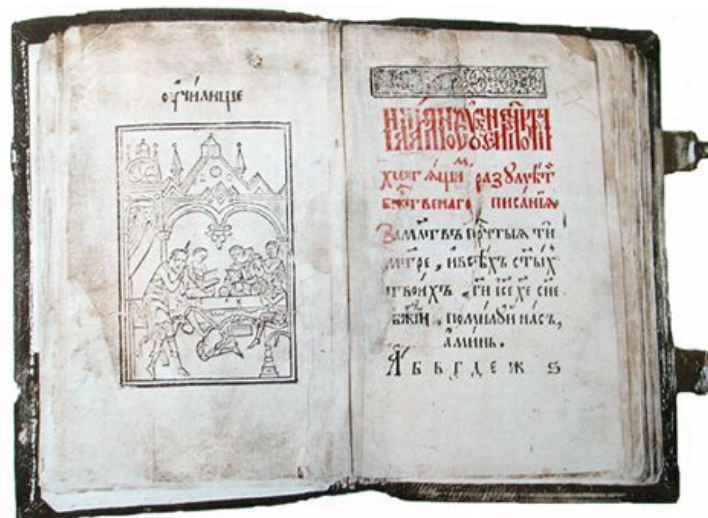 оу҆чи́лище
хотѧ́щим разꙋмѣ́т
бж҃твенаго писа́нїѧ
За мл҃твъ пр҃чтыѧ ти
мт҃ре, и всѣ́хъ ст҃ы́хъ
твои́хъ, ги҃ і҆се хе҃ сн҃е
бж҃їи, поми́лꙋй на́съ,
а҆ми́нь.
А Б В Г Д Е Ж Ѕ